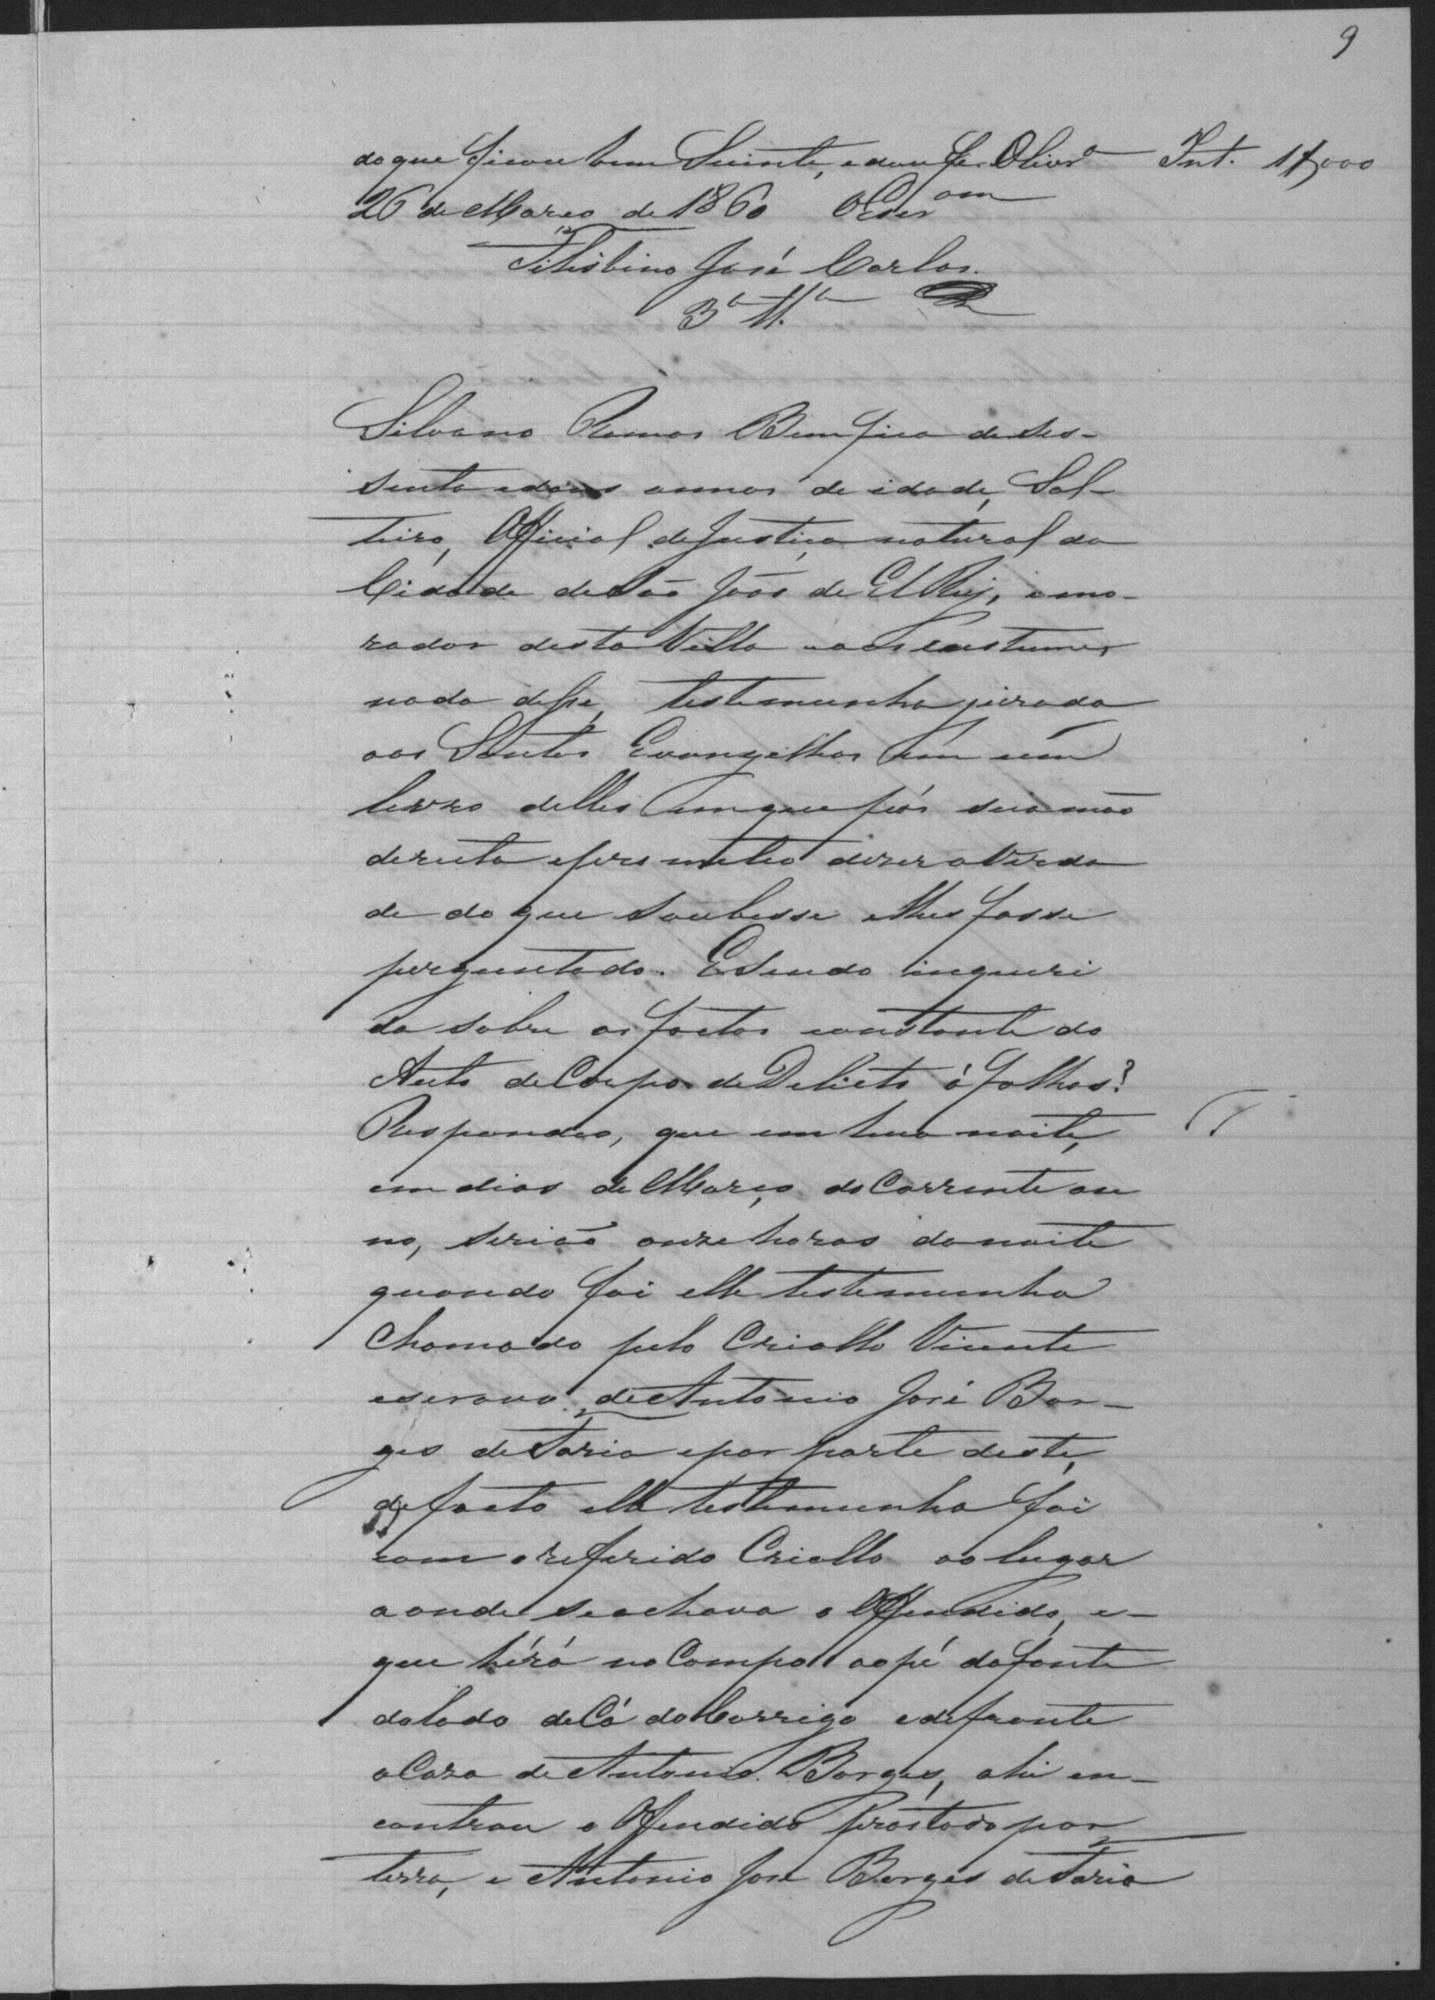 9
do que ficou bem Sciente, e dou fe. Olivrª Int. 1$000
26 de Março de 1860 O Escram
José Carlos.
3ª Tª
Silvano Ramos Bemfica de ses-
senta e dous annos de idade, Sol-
teiro, Official de Justiça natural da
Cidade de São João de El Rei, e mo-
rador desta Villa e aos custumes
nada disse, testemunha jurada
aos Santos Evangelhos em um
livro delles em que pôs sua mão
dereita e prometeo dizer a Verda
de do que soubesse e lhes fosse
perguntado. E sendo inqueri
da sobre os factos constante do
Auto de Corpo de Delicto á folhas?
Respondeo, que em huа noite,
em dias de Março do Corrente an
no, serião onze horas da noite
quando foi elle testemunha
Chamado pelo Criollo Vicente
escravo de Antonio José Bor-
ges de Faria e por parte deste,
de facto elle testemunha foi
com o referido Criollo ao lugar
aonde se achava o Offendido, e
que hérá no Campo ao pé da fonte
do lado de Cá do Corrigo e defronte
a Caza de Antonio Borges, ahi en-
controu o Offendido prostado por
terra, e Antonio José Borges de Faria